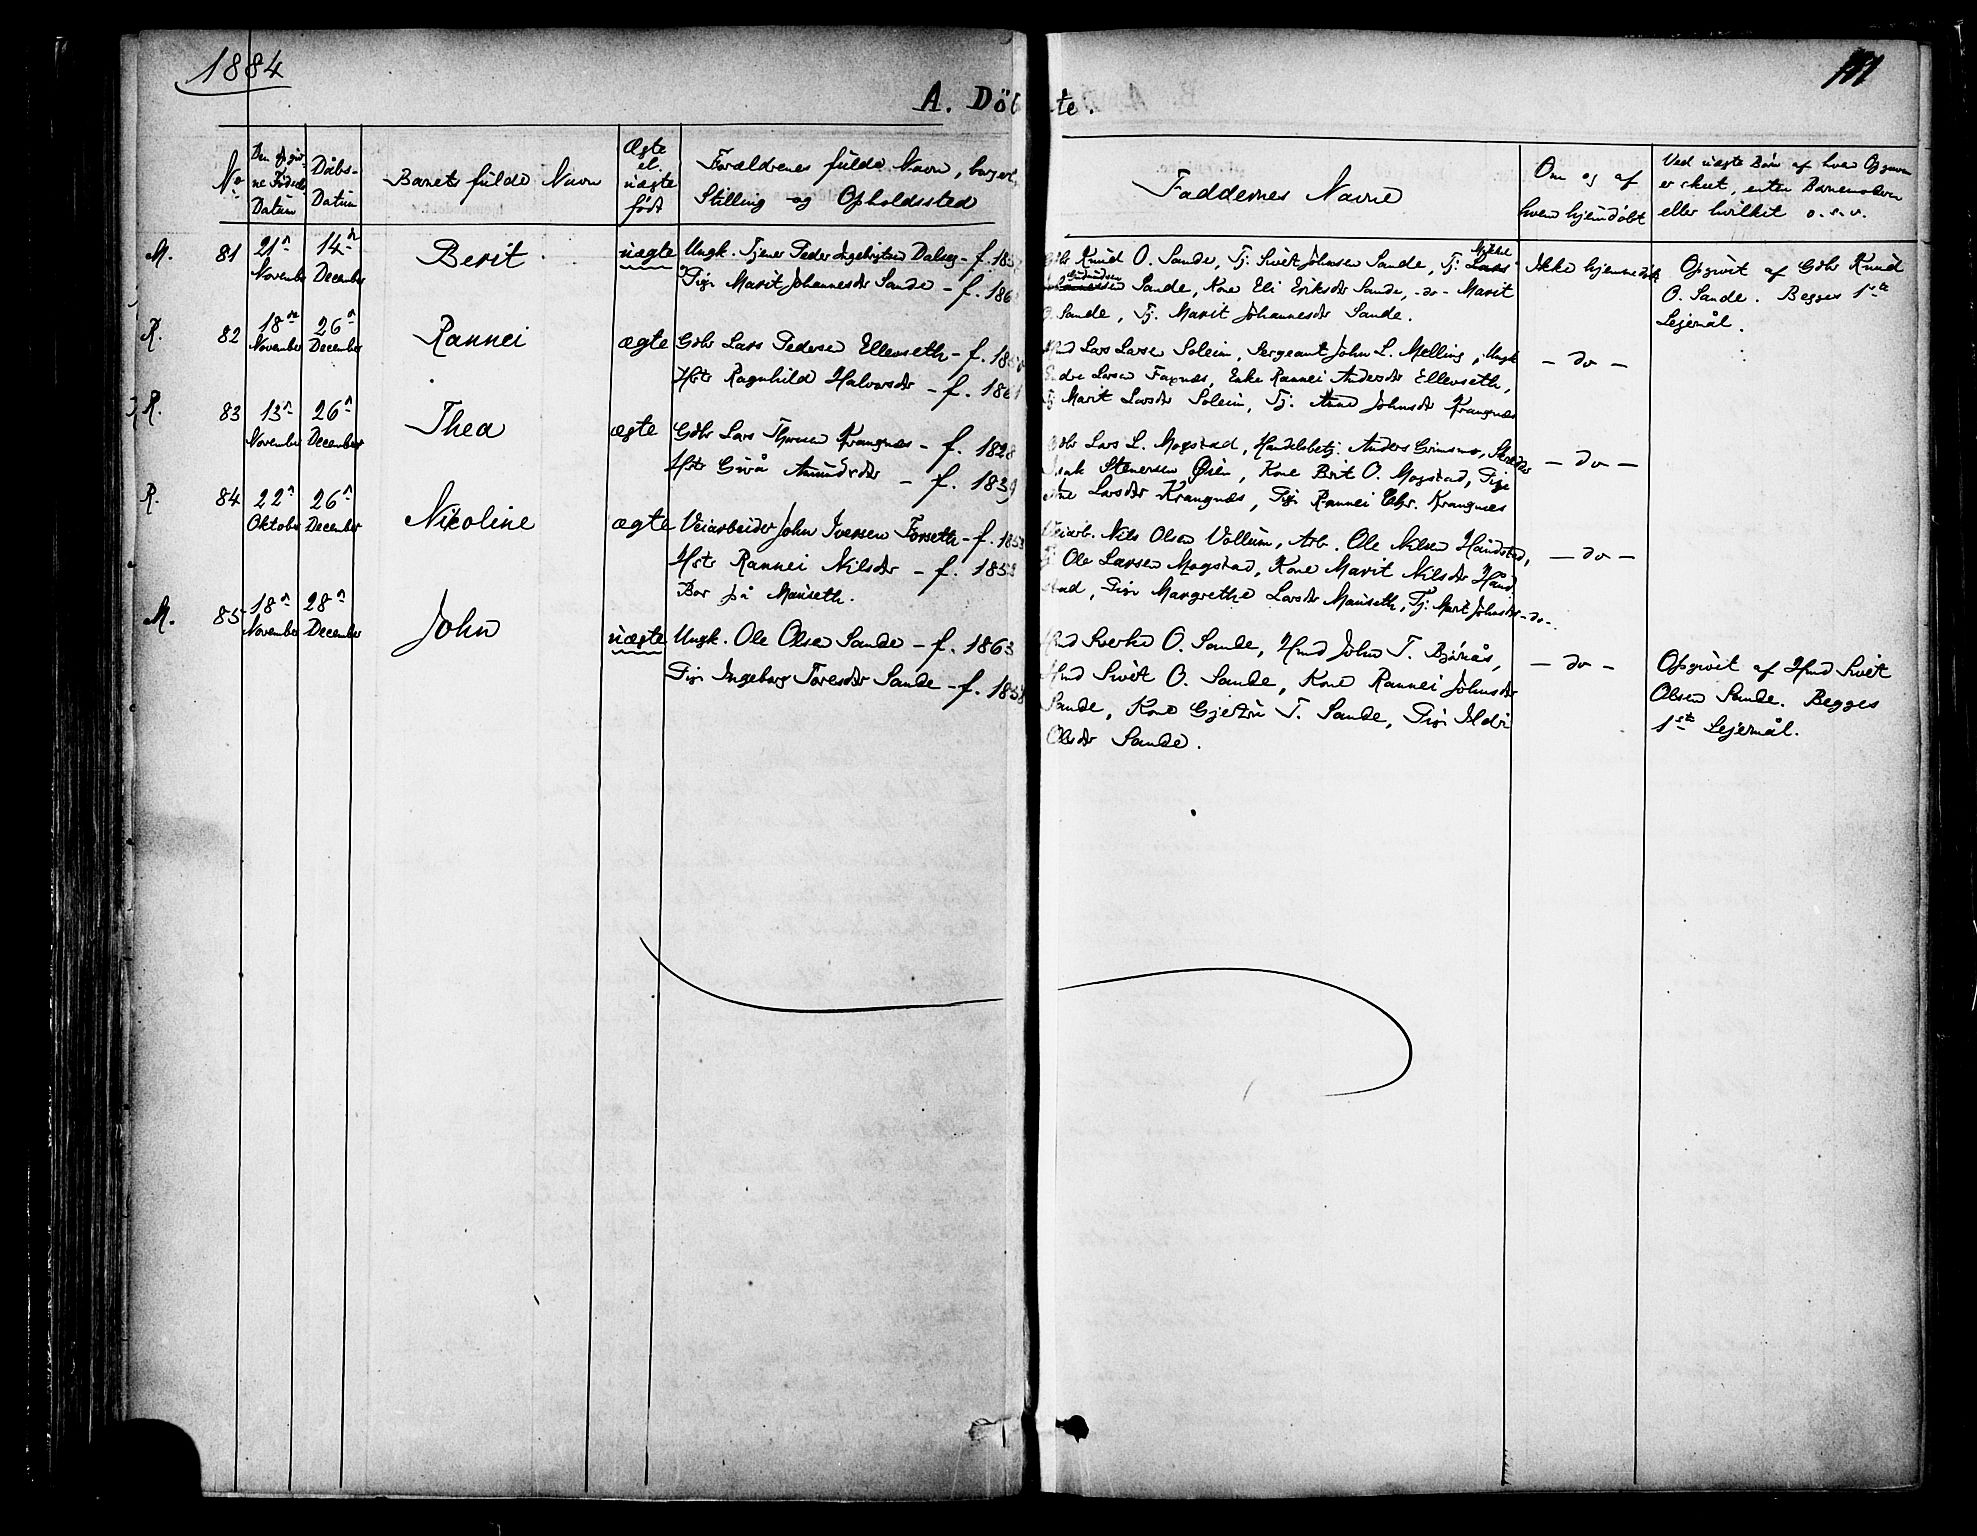 1884
A. Döbte.
No
Den opgiv-
ne Fødsels
Datum
Dåbs-
Datum
Barnets fulde Navn
Ægte
el.
uægte
født
Forældrenes fulde Navn, borgerl.
Stilling og Opholdssted
Faddernes Navne
Om og af
hvem hjemdøbt
Ved uægte Børn af hvem Opgaven
er skeet, enten Barnemoderen
eller hvilket o.s.v.
M. 81 21n November 14n December Berit uægte
Ungk. Tjener Peder Ingebrigtsen Dalseg - f. 185
Pige Marit Johannesdr Sande - f. 186
Knud O. Sande, Tj. Sivert Johnsen Sande, Tj. Lars
Sande, Kone Eli Eriksdr Sande, -do- Marit
O. Sande, Tj. Marit Johannesdr Sande.
Ikke hjemmedøbt
Opgivet af Gbr Knud
O. Sande. Begges 1ste
Lejermål.
R. 82 18n November 26n December Rannei ægte
Gbr Lars Pedersen Ellenseth - f. 185
Hstr Ragnhild Halvorsdr - f. 1861
Lars Larsen Soleim, Sergeant John L. Melling, Ungk
Larsen Foxnæs, Enke Rannei Andersdr Ellenseth,
Tj Marit Larsdr Soleim, Tj. Ane Johnsdr Krangnæs
- do -
R. 83 13n November 26n December Thea ægte
Gbr Lars Thoresen Krangnæs - f. 1828
Hstr Gurå Amundsdr - f. 1839
Gbr Lars L. Mogstad, Handelsbetj. Anders Grimsmo, Skrædder
Isak Stenersen Øien, Kone Brit O. Mogstad, Pige
Ane Larsdr Krangnæs, Pige Rannei Krangnæs
- do -
R. 84 22n Oktober 26n December Nicoline ægte
Veiarbeider John Iversen Forseth - f. 1853
Hstr Rannei Nilsdr - f. 1853
Bor på Mauseth.
Veiarb. Nils Olsen Vollum, Arb. Ole Nilsen Håndstad,
Tj Ole Larsen Mogstad, Kone Marit Nilsdr Hånd
stad, Pige Margrethe Larsdr Mauseth, Tj. Marit Johnsdr -do-.
- do -
M. 85 18n November 28n December John uægte
Ungk. Ole Olsen Sande - f. 1863
Pige Ingeborg Toresdr Sande - f. 1858
Hmd Sverke O. Sande, Hmd John T. Bjørnås,
Hmd Sivert O. Sande, Kone Rannei Johnsdr
Sande, Kone Gjertru T. Sande, Pige Ildri
Olsdr Sande.
- do -
Opgivet af Hmd Sivert
Olsen Sande. Begges
1ste Lejermål.